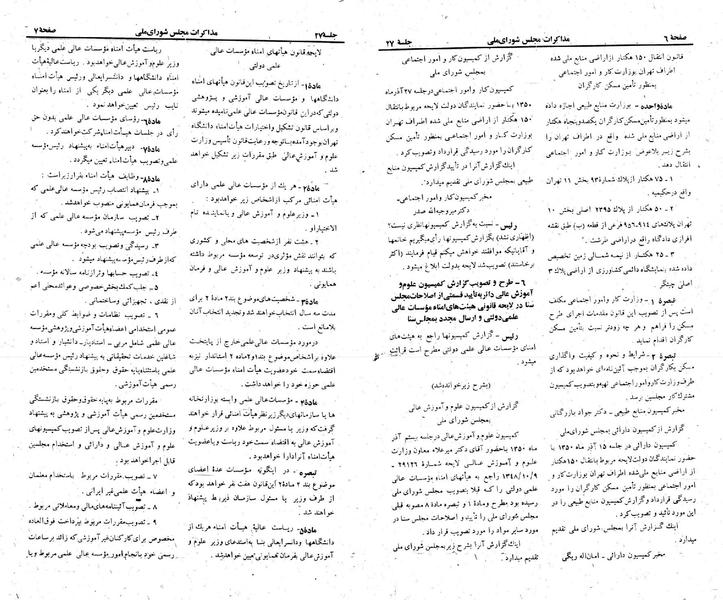 صفحهٔ ۶
مذاکرات مجلس شورای ملی
جلسهٔ ۲۷
قانون انتقال ۱۵۰ هکتار ازاراضی منابع ملی شده
اطراف تهران بوزارت کار و امور اجتماعی
بمنظور تأمین مسکن کارگران
مادهٔ واحده - بوزارت منابع طبیعی اجازه داده
میشود بمنظور تأمین مسکن کارگران یکصدوپنجاه هکتار
از اراضی منابع ملی شده واقع در اطراف تهران را
بشرح زیر بلاعوض بوزارت کار و امور اجتماعی
انتقال دهد.
۱ - ۷۵ هکتار از پلاک شمارهٔ ۹۳ بخش ۱۱ تهران
واقع در حکیمیه .
۲ - ۵۰ هکتار از پلاک ۲۳۹۵ اصلی بخش ۱۰
تهران پلاکهای ۹۱۴ و ۹۵۶ فرعی از قطعه (ب) طبق نقشه
افرازی دادگاه واقع در اراضی طرشت .
۳ - ۲۵ هکتار از نیمه شمالی زمین تخصیص
داده شده بنمایشگاه دائمی کشاورزی از اراضی پلاک ۳
اصلی چیتگر
تبصرهٔ ۱ - وزارت کار و امور اجتماعی مکلف
است پس از تصویب این قانون مقدمات اجرای طرح
مسکن را فراهم و هر چه زودتر نسبت بتأمین مسکن
کارگران اقدام نماید
تبصرهٔ ۲ - شرایط و نحوه و کیفیت واگذاری
مسکن بکارگران بموجب آئین‌نامه‌ای خواهد بود که از
طرف وزارت کار وامور اجتماعی تهیه وبتصویب کمیسیون
مشترک کار مجلسین برسد .
مخبر کمیسیون منابع طبیعی - دکتر جواد بازرگانی
گزارش از کمیسیون دارائی بمجلس شورای ملی
کمیسیون دارائی در جلسه ۱۵ آذر ماه ۱۳۵۰ با
حضور نمایندگان دولت لایحه مربوط بانتقال ۱۵۰ هکتار
از اراضی منابع ملی شده اطراف تهران بوزارت کار و
امور اجتماعی بمنظور تأمین مسکن کارگران را مورد
رسیدگی قرارداد وگزارش کمیسیون منابع طبیعی را در
این مورد تأیید و تصویب کرد .
اینک گزارش آنرا بمجلس شورای ملی تقدیم
میدارد .
مخبر کمیسیون دارائی - امان‌اله ریگی
گزارش از کمیسیون کار و امور اجتماعی
بمجلس شورای ملی
کمیسیون کار و امور اجتماعی در جلسه ۲۷ آذر ماه
۱۳۵۰ با حضور نمایندگان دولت لایحه مربوط بانتقال
۱۵۰ هکتار از اراضی منابع ملی شده اطراف تهران
بوزارت کار و امور اجتماعی بمنظور تأمین مسکن
کارگران را مورد رسیدگی قرارداد و تصویب کرد .
اینک گزارش آنرا با تأیید گزارش کمیسیون منابع
طبیعی به مجلس شورای ملی تقدیم میدارد .
مخبر کمیسیون کار و امور اجتماعی
دکتر میرو جیه‌الله صدر
رئیس - نسبت به گزارش کمیسیونها نظری نیست؟
(اظهاری نشد) بگزارش کمیسیونها رأی میگیریم خانمها
و آقایانیکه موافقند خواهش میکنم قیام فرمایند (اکثر
برخاستند) تصویب شد لایحه بدولت ابلاغ میشود .
۶ - طرح و تصویب گزارش کمیسیون علوم و
آموزش عالی دائر به تأیید قسمتی از اصلاحات مجلس
سنا در لایحه قانونی هیئت‌های امناء مؤسسات عالی
علمی دولتی و ارسال مجدد بمجلس سنا
رئیس - گزارش کمیسیونها راجع به هیئت‌های
امنای مؤسسات عالی علمی دولتی مطرح است قرائت
میشود .
(بشرح زیر خوانده شد)
گزارش از کمیسیون علوم و آموزش عالی
بمجلس شورای ملی
کمیسیون علوم و آموزش عالی در جلسه بیستم آذر
ماه ۱۳۵۰ با حضور آقای دکتر میرعلاء معاون وزارت
علوم و آموزش عالی لایحه شمارهٔ ۲۹۱۲۲ -
۱۳۴۸/۱۰/۹ راجع به هیأتهای امناء مؤسسات عالی
علمی دولتی را که قبلا بتصویب مجلس شورای ملی
رسیده بود مطرح ومادهٔ ۱ و تبصره مادهٔ ۸ مصوبه قبلی
مجلس شورای ملی را تأیید و اصلاحات مجلس سنا در
مورد سایر مواد را مورد تصویب قرار داد .
اینک گزارش آنرا بشرح زیر بمجلس شورای ملی
تقدیم میدارد .
جلسهٔ ۲۷
مذاکرات مجلس شورای ملی
صفحهٔ ۷
لایحه قانون هیأتهای امناء مؤسسات عالی
علمی دولتی
مادهٔ ۱ - از تاریخ تصویب این قانون هیأتهای امناء
دانشگاهها و مؤسسات عالی آموزشی و پژوهشی
دولتی که در این قانون مؤسسات عالی علمی نامیده میشوند
و بر اساس قانون تشکیل و اختیارات هیأت امناء دانشگاه
تهران بوجود آمده با توجه و رعایت قانون تأسیس وزارت
علوم و آموزش عالی طبق مقررات زیر تشکیل خواهد
شد .
مادهٔ ۲ - هر یک از مؤسسات عالی علمی دارای
هیأت امنائی مرکب از اشخاص زیر خواهد بود :
۱ - وزیر علوم و آموزش عالی و یا نماینده تام
الاختیار او .
۲ - هشت نفر از شخصیت های محلی و کشوری
که بتوانند نقش مؤثری در توسعه مؤسسه مربوط داشته
باشند به پیشنهاد وزیر علوم و آموزش عالی و فرمان
همایونی .
مادهٔ ۳ - شخصیت‌های موضوع بند ۲ مادهٔ ۲ برای
مدت سه سال انتخاب خواهند شد و تجدید انتخاب آنان
بلامانع است .
مادهٔ ۴ - در مورد مؤسسات عالی علمی خارج از پایتخت
علاوه بر اشخاص موضوع بند ۲ و ۱ ماده ۲ استاندار نیز به
اقتضاء سمت خود عضویت هیأت امناء مؤسسات عالی
علمی حوزه خود را خواهد داشت .
مادهٔ ۵ - مؤسسات عالی علمی وابسته بوزارتخانه
ها یا سازمانهای دیگر زیر نظر هیأت امنائی قرار خواهند
گرفت که وزیر یا مسئول مربوط علاوه بر وزیر علوم و
آموزش عالی به اقتضاء سمت خود ریاست و یا عضویت
هیأت امناء آنرا دارا خواهد بود .
تبصره - در اینگونه مؤسسات عدهٔ اعضای
موضوع بند ۲ مادهٔ ۲ این قانون هفت نفر خواهد بود که
از طرف وزیر یا مسئول سازمان ذیربط پیشنهاد
میگردد .
مادهٔ ۵ - ریاست عالیهٔ هیأت امناء هر یک از
دانشگاهها و مدارس عالی بنا به استدعای وزیر علوم و
آموزش عالی بفرمان همایونی تعیین خواهد شد .
ریاست هیأت امناء مؤسسات عالی علمی دیگر با
وزیر علوم و آموزش عالی خواهد بود . ریاست عالیهٔ هیأت
امناء دانشگاهها و مدارس عالی و رئیس هیأت امناء
مؤسسات عالی علمی دیگر یکی از امناء را بعنوان
نایب رئیس تعیین خواهد نمود .
مادهٔ ۶ - رؤسای مؤسسات عالی علمی بدون حق
رأی در جلسات هیأت امناء شرکت خواهند کرد .
مادهٔ ۷ - دبیر هیأت امناء به پیشنهاد رئیس مؤسسه
علمی و تصویب هیأت امناء تعیین میگردد .
مادهٔ ۸ - وظایف هیأت امناء بقرار زیر است :
۱ - پیشنهاد انتصاب رئیس مؤسسه عالی علمی که
بموجب فرمان همایونی منصوب خواهد شد .
۲ - تصویب سازمان مؤسسه عالی علمی که از
طرف رئیس مؤسسه پیشنهاد می شود .
۳ - رسیدگی وتصویب بودجه مؤسسه عالی علمی
که از طرف رئیس مؤسسه پیشنهاد میشود .
۴ - تصویب حسابها وترازنامه سالانه مؤسسه .
۵ - جلب کمک بخش خصوصی و عوائد محلی اعم
از نقدی ، تجهیزاتی وساختمانی .
۶ - تصویب نظامات و ضوابط کلی ومقررات
عمومی استخدامی اعضاء هیأت آموزشی وپژوهشی مؤسسه
عالی علمی شامل مربی - استادیار - دانشیار و استاد و
شاغلین خدمات تحقیقاتی به پیشنهاد رئیس مؤسسه عالی
علمی با استثنای دانشگاه تهران به پیشنهاد
رئیس هیأت آموزشی .
مقررات مربوط به پایه حقوق وحقوق بازنشستگی
مستخدمین رسمی هیأت آموزشی و پژوهشی به پیشنهاد
وزارت علوم و آموزش عالی پس از تصویب کمیسیونهای
علوم و آموزش عالی و دارائی و استخدام مجلسین
قابل اجرا خواهد بود .
۷ - تصویب مقررات مربوط باستخدام معلمان
و اعضاء هیأت علمی غیر ایرانی .
۸ - تصویب آئین‌نامه‌های مالی ومعاملاتی مربوط .
۹ - تصویب مقررات مربوط بپرداخت فوق‌العاده
مخصوص برای کارکنان غیر آموزشی که زائد بر ساعات
رسمی خود بانجام امور مؤسسه عالی علمی مربوط و یا